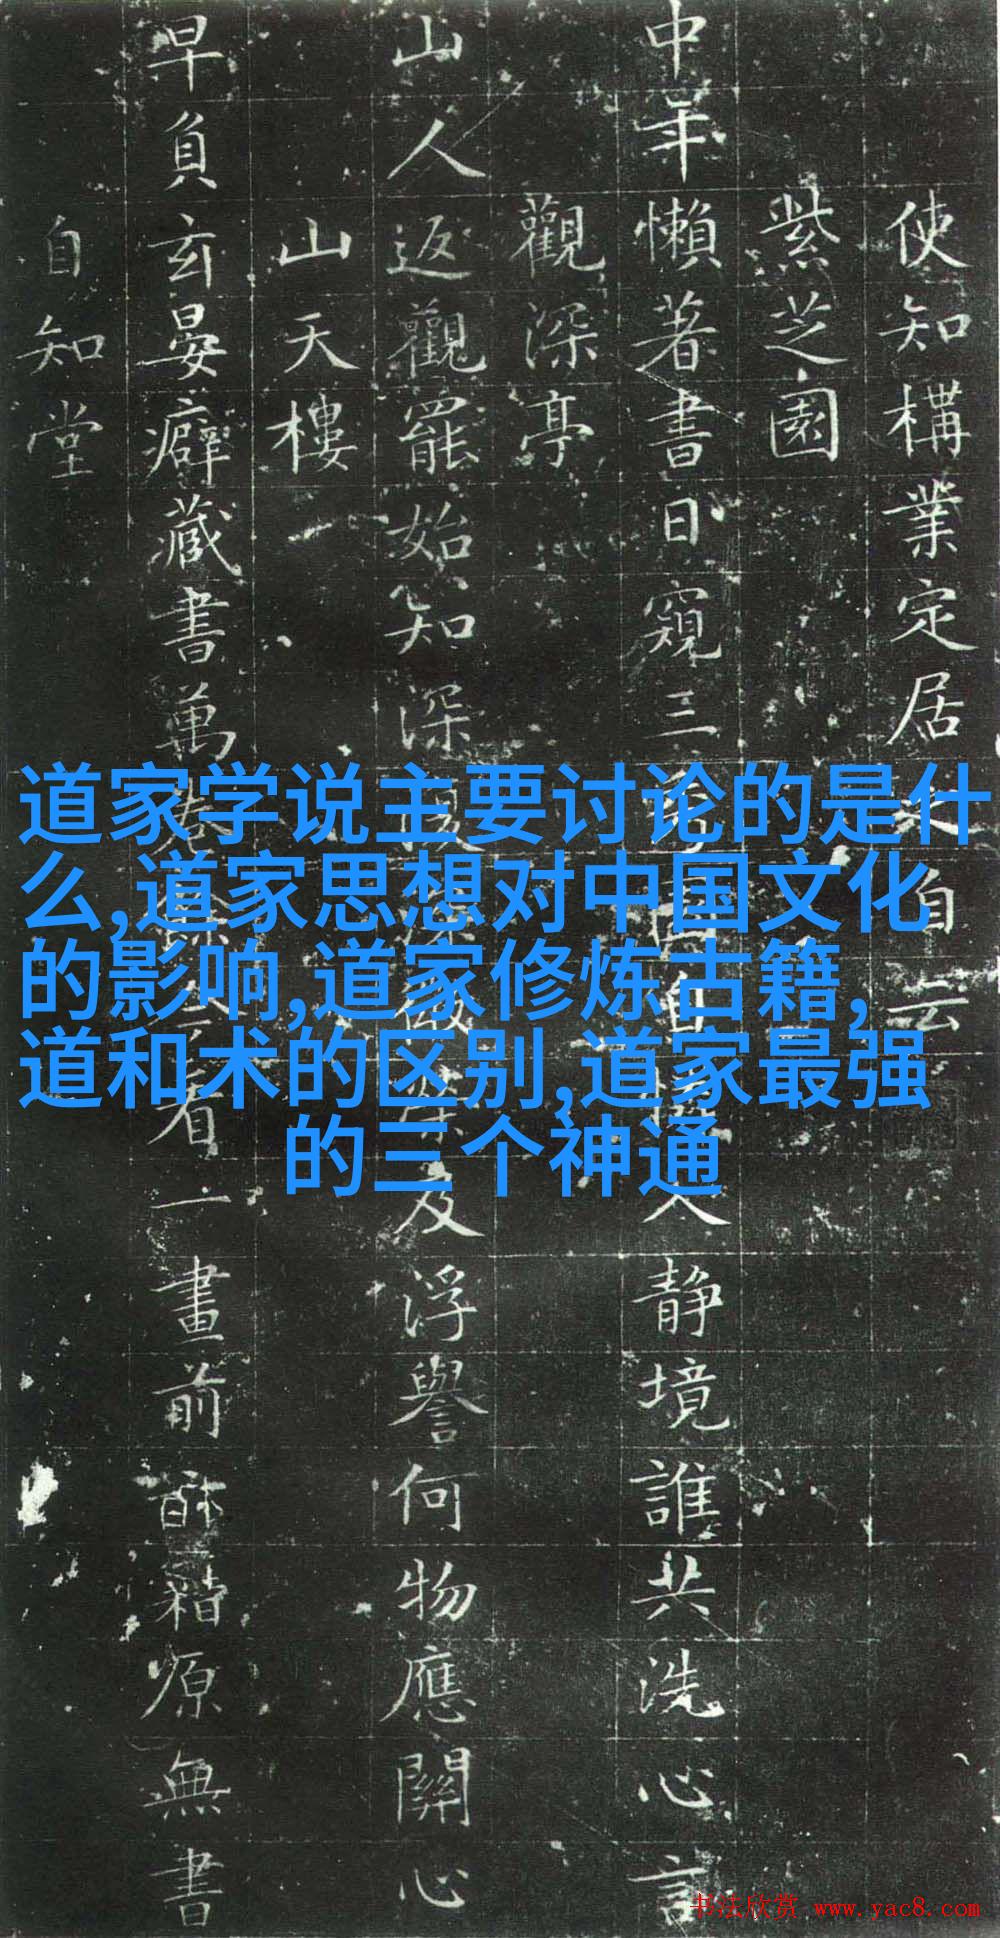 使知構業定居自云
紫芝園
中年懶著書日窺三静境誰共洗心言
觀深亭
山人返觀罷始知深及浮譽何物應關心
山天樓
早負玄晏癖藏書萬看一畫前籍原無書
自知堂
道家学说主要讨论的是什
么,道家思想对中国文化
的影响,道家修炼古籍,
道和术的区别,道家最强
的三个神通
书法欣赏 www.yac8.com